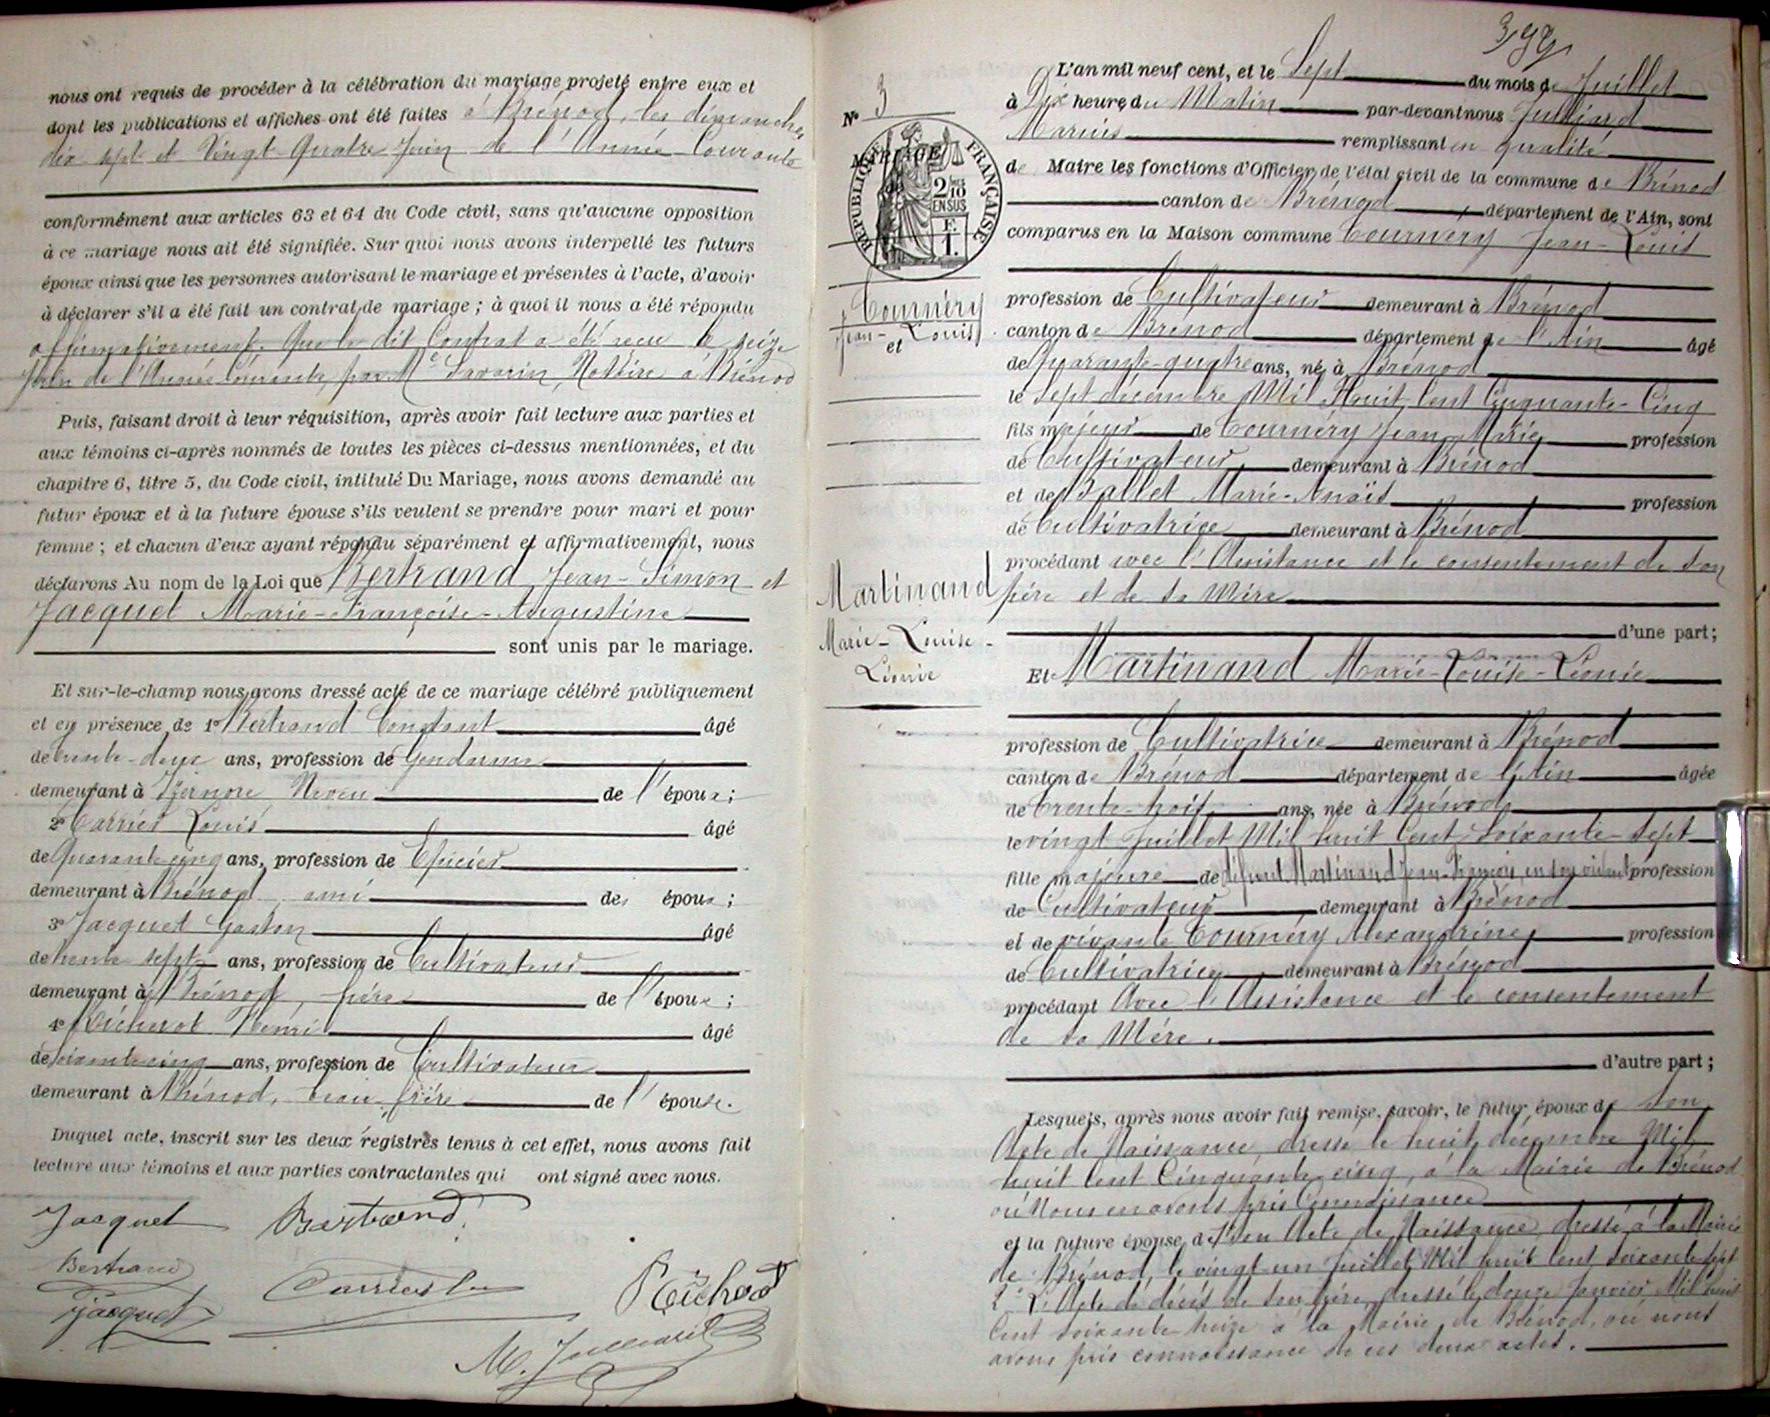 nous ont requis de procéder à la célébration du mariage projeté entre eux et
dont les publications et affiches ont été faites à Brénod, les dimanches
dix sept et Vingt-Quatre Juin de l'Année Courante
conformément aux articles 63 et 64 du Code civil, sans qu'aucune opposition
à ce mariage nous ait été signifiée. Sur quoi nous avons interpellé les futurs
époux ainsi que les personnes autorisant le mariage et présentes à l'acte, d'avoir
à déclarer s'il a été fait un contrat de mariage ; à quoi il nous a été répondu
affirmativement. Que le dit Contrat a été reçu le seize
Juin de l'Année Courante, par Me Savarin, Notaire à Brénod
Puis, faisant droit à leur réquisition, après avoir fait lecture aux parties et
aux témoins ci-après nommés de toutes les pièces ci-dessus mentionnées, et du
chapitre 6, titre 5, du Code civil, intitulé Du Mariage, nous avons demandé au
futur époux et à la future épouse s'ils veulent se prendre pour mari et pour
femme ; et chacun d'eux ayant répondu séparément et affirmativement, nous
déclarons Au nom de la Loi que Bertrand Jean-Simon et
Jacquet Marie-Françoise-Augustine
sont unis par le mariage.
Et sur-le-champ nous avons dressé acte de ce mariage célébré publiquement
et en présence de 1° Bertrand Constant âgé
de trente-deux ans, profession de Gendarme
demeurant à Izernore Neveu de l'époux ;
2° Carrier Louis âgé
de Quarante cinq ans, profession de Epicier
demeurant à Brénod, ami des époux ;
3° Jacquet Gaston âgé
de trente sept ans, profession de Cultivateur
demeurant à Brénod, frère de l'épouse ;
4° Henri âgé
de soixante cinq ans, profession de Cultivateur
demeurant à Brénod, beau-frère de l'épouse.
Duquel acte, inscrit sur les deux registres tenus à cet effet, nous avons fait
lecture aux témoins et aux parties contractantes qui ont signé avec nous.
Jacquet Bertrand
Bertrand
Jacquet
M. Julliard
399
N° 3
MARIAGE
RÉPUBLIQUE FRANÇAISE
2/10
EN SUS
F.
1.
Tournéry
Jean-Louis
et
Martinand
Marie-Louise-
Léonie
L'an mil neuf cent, et le Sept du mois de Juillet
à Dix heures du Matin par-devant nous Julliard
Marius remplissant en qualité
de Maire les fonctions d'Officier de l'état civil de la commune de Brénod
canton de Brénod département de l'Ain, sont
comparus en la Maison commune Tournéry Jean-Louis
profession de Cultivateur demeurant à Brénod
canton de Brénod département de l'Ain âgé
de Quarante-quatre ans, né à Brénod
le Sept décembre Mil Huit Cent Cinquante-Cinq
fils majeur de Tournéry Jean Marie profession
de Cultivateur demeurant à Brénod
et de Ballet Marie-Anaïs profession
de Cultivatrice demeurant à Brénod
procédant avec l'Assistance et le consentement de son
père et de sa Mère
d'une part ;
Et Martinand Marie-Louise-Léonie
profession de Cultivatrice demeurant à Brénod
canton de Brénod département de l'Ain âgée
de trente-trois ans, née à Brénod
le vingt Juillet Mil huit Cent Soixante-Sept
fille majeure de défunt Martinand Jean-François, en son vivant profession
de Cultivateur demeurant à Brénod
et de vivante Tournéry Alexandrine profession
de Cultivatrice demeurant à Brénod
procédant Avec l'Assistance et le consentement
de sa Mère.
d'autre part ;
Lesquels, après nous avoir fait remise, savoir, le futur époux de son
Acte de Naissance, dressé le huit décembre Mil
huit Cent Cinquante cinq, à la Mairie de Brénod
où Nous en avons pris Connaissance
et la future épouse, de 1° son Acte de Naissance, dressé à la Mairie
de Brénod, le vingt-un Juillet Mil huit Cent soixante-sept
2° L'Acte de décès de son père, dressé le douze Janvier Mil huit
Cent soixante treize à la Mairie de Brénod, où nous
avons pris connaissance de ces deux actes.